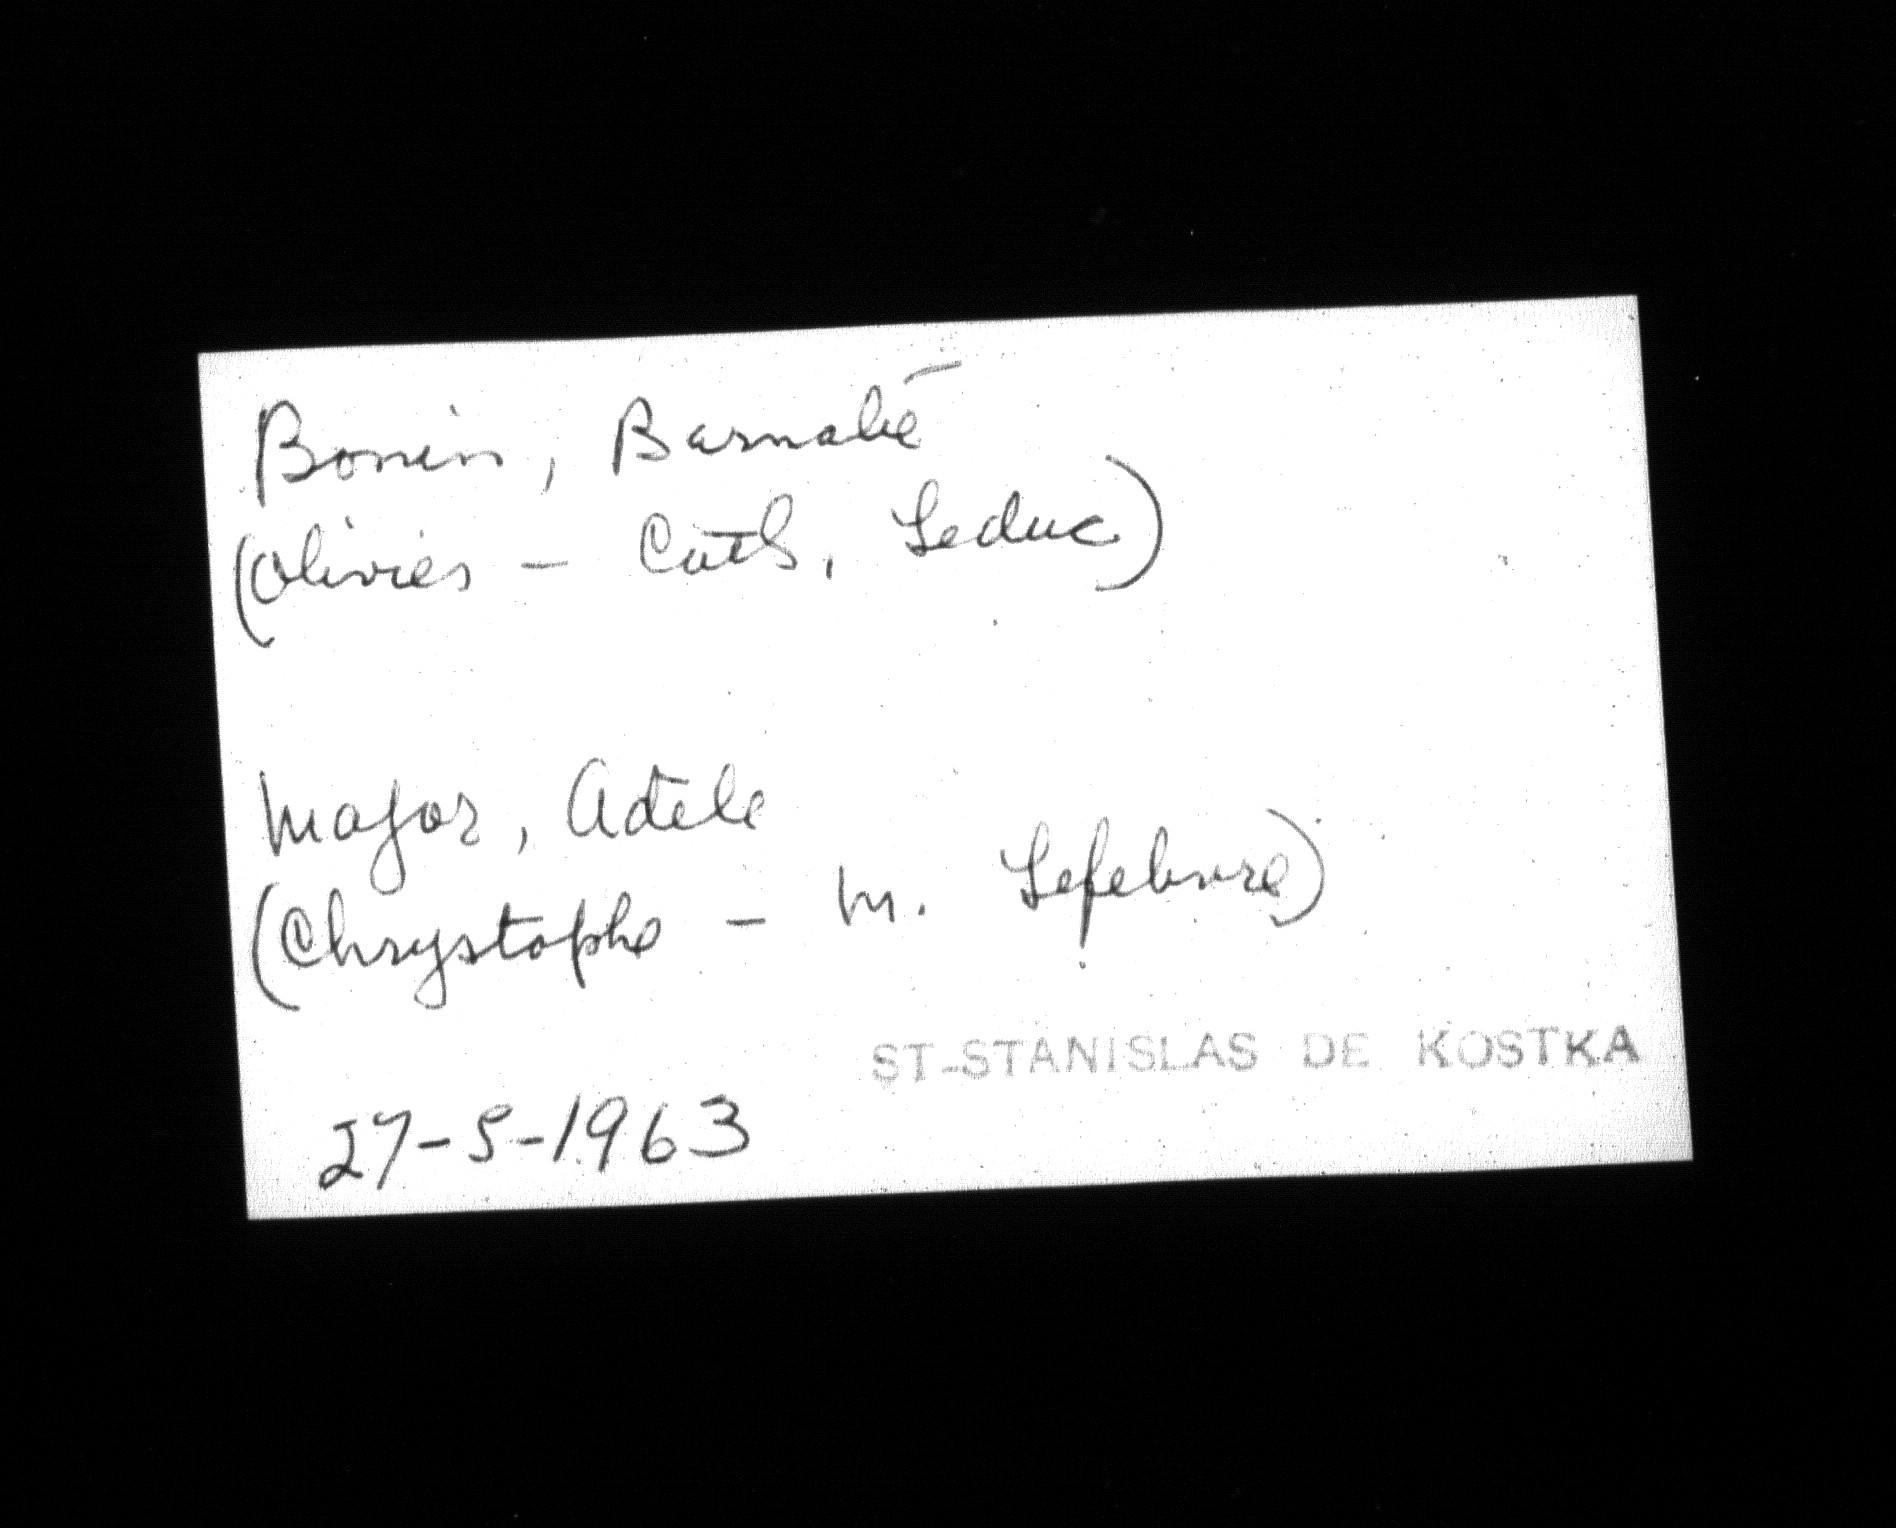 Bonin, Barnabé
(Olivier - Cath, Leduc)
Major, Adele
(Chrystophe - M. Lefebvre)
ST-STANISLAS DE KOSTKA
27-5-1963